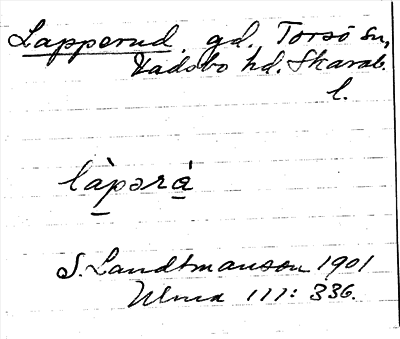 Lapperud. gd. Torsö sn,
Vadsbo hd. Skarab.
l.
làpərá
S. Landtmanson 1901
111: 336.